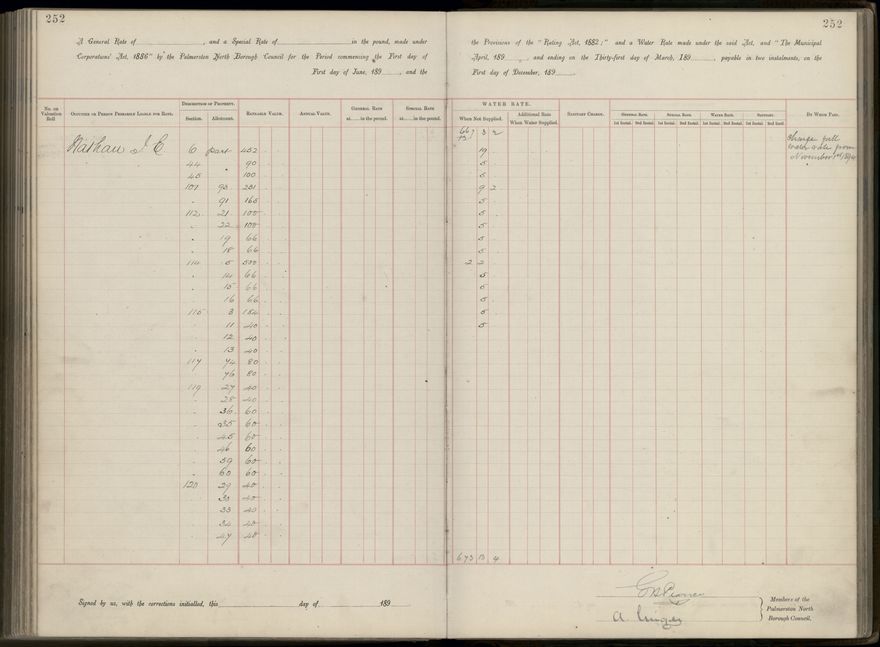 252
252
A General Rate of , and a Special Rate of in the pound, made under
the Provisions of the "Rating Act, 1882;" and a Water Rate made under the said Act, and "The Municipal
Corporations' Act, 1886" by the Palmerston North Borough Council for the Period commencing the First day of
April, 189 , and ending on the Thirty-first day of March, 189 , payable in two instalments, on the
First day of June, 189 , and the
First day of December, 189
No. on Valuation Roll
Occupier or Person Primarily Liable for Rate.
Description of Property.
Section. Allotment.
Rateable Value.
Annual Value.
General Rate at in the pound.
Special Rate at in the pound.
WATER RATE.
When Not Supplied.
Additional Rate When Water Supplied.
Sanitary Charge.
General Rate.
Special Rate.
Water Rate.
Sanitary.
1st Instal. 2nd Instal. 1st Instal. 2nd Instal. 1st Instal. 2nd Instal. 1st Instal. 2nd Instal.
By Whom Paid.
667 3 2
Charge full
water rate from
November 1st 1894
Nathan J. E. 6 part 452 19
44 90 5
45 100 5
107 90 281 9 2
91 165 5
112 21 100 5
22 100 5
19 66 5
18 66 5
114 5 500 2 2
14 66 5
15 66 5
16 66 5
115 3 184 5
11 40 5
12 40
13 40
117 74 80
76 80
119 27 40
28 40
36 60
35 60
45 60
46 60
59 60
60 60
120 29 40
33 40
34 40
47 40
673 13 4
Signed by us, with the corrections initialled, this day of 189
Members of the
Palmerston North
Borough Council.